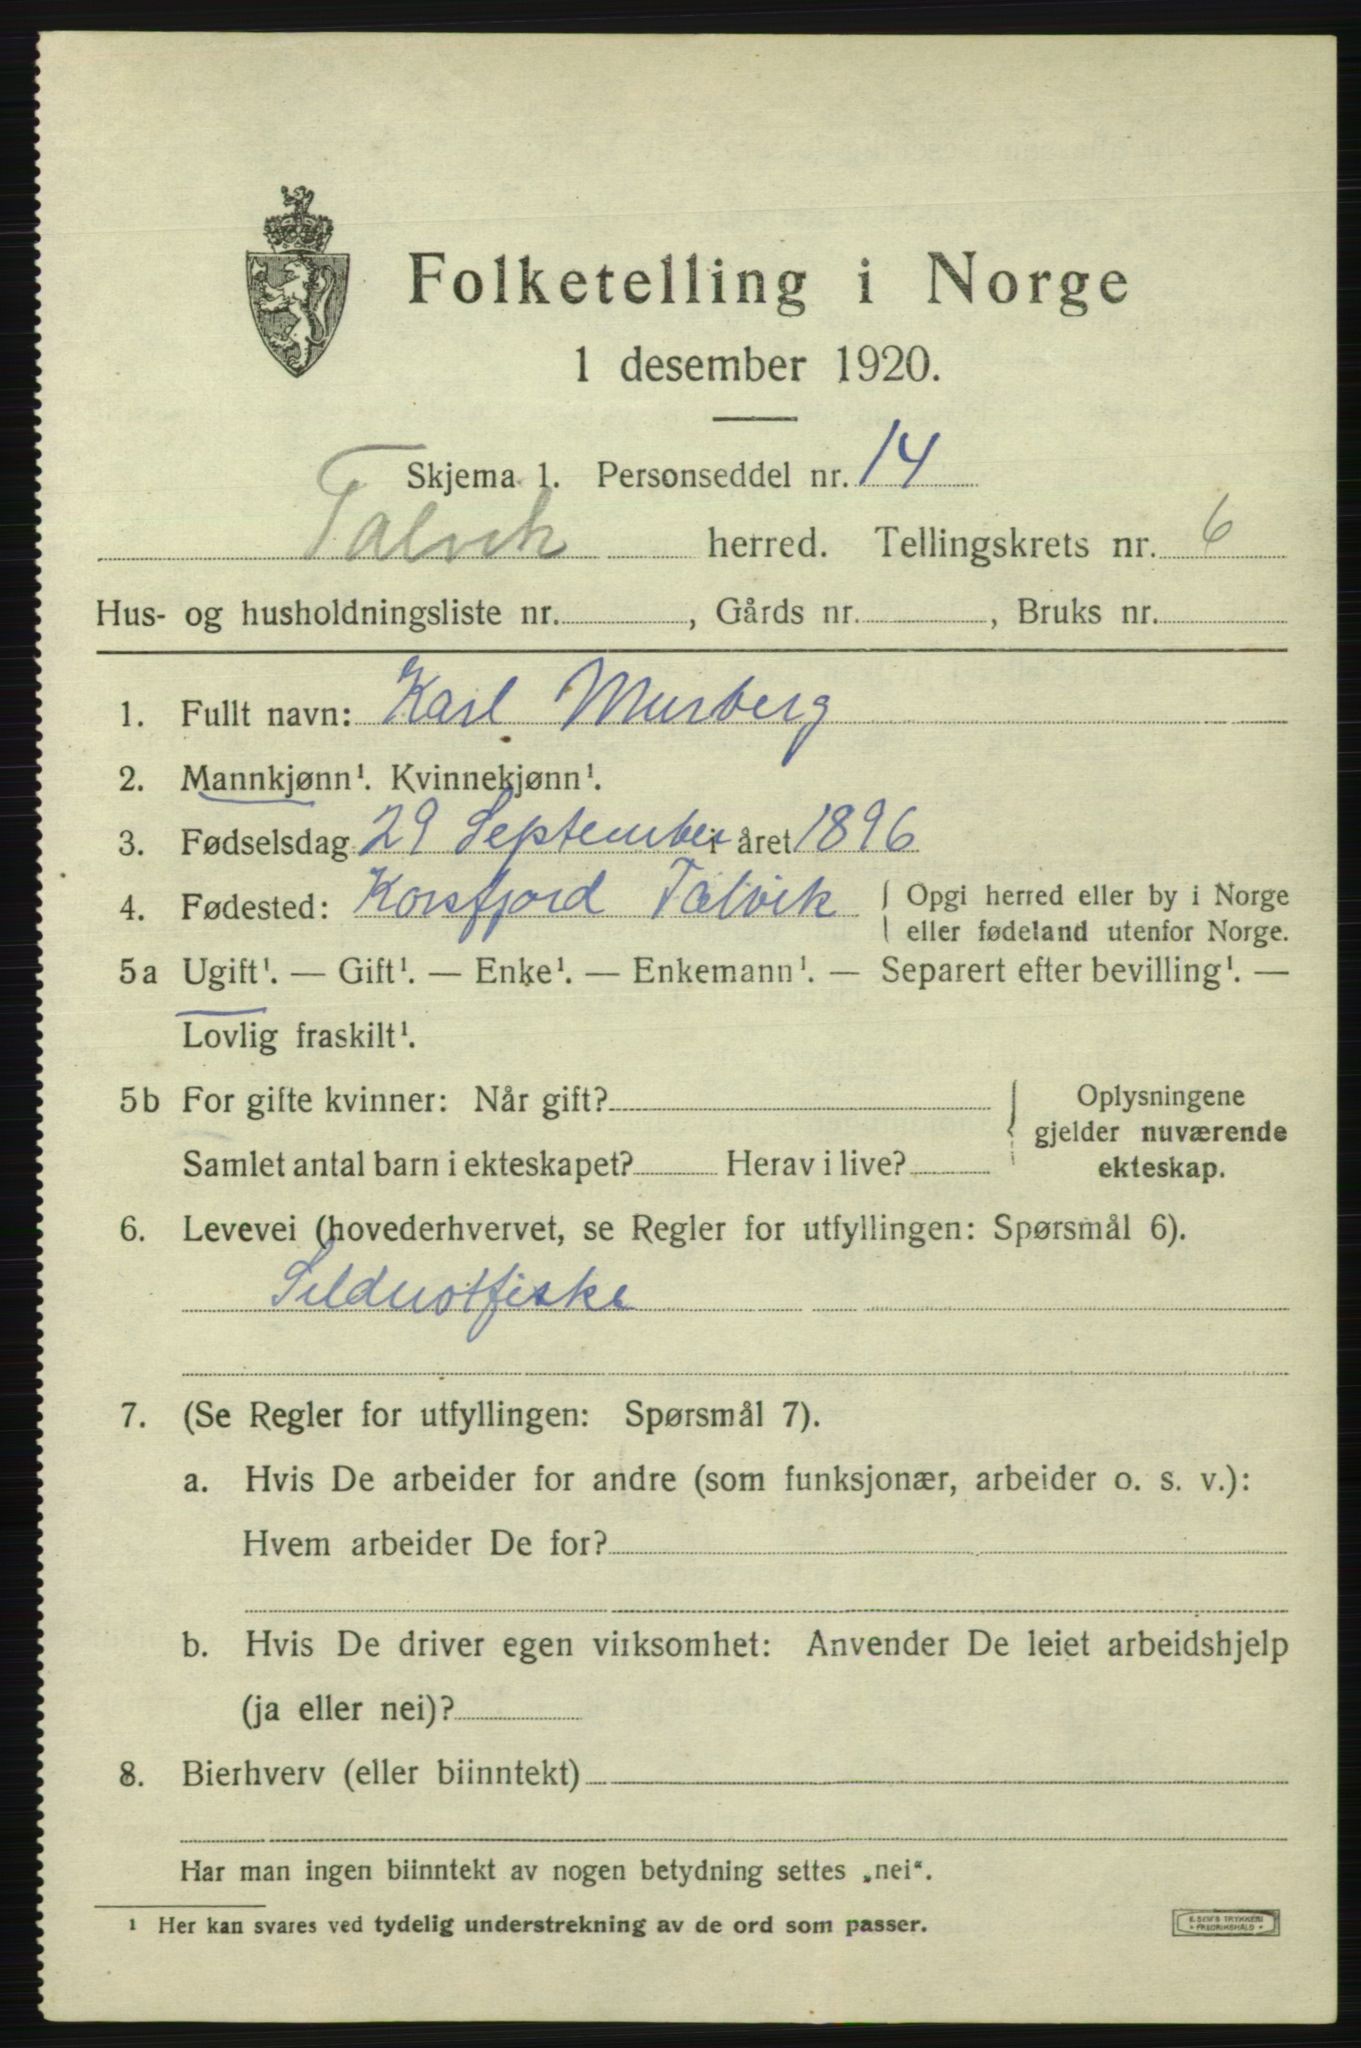 Folketelling i Norge
1 desember 1920.
Skjema 1. Personseddel nr. 14
Talvik herred. Tellingskrets nr. 6
Hus- og husholdningsliste nr. , Gårds nr. , Bruks nr.
1. Fullt navn: Karl Murberg
2. Mannkjønn¹. Kvinnekjønn¹.
3. Fødselsdag 29 September i året 1896
4. Fødested: Korsfjord Talvik { Opgi herred eller by i Norge
eller fødeland utenfor Norge.
5a Ugift¹. — Gift¹. — Enke¹. — Enkemann¹. — Separert efter bevilling¹. —
Lovlig fraskilt¹.
5b For gifte kvinner: Når gift? } Oplysningene
gjelder nuværende
Samlet antal barn i ekteskapet? Herav i live? ekteskap.
6. Levevei (hovederhvervet, se Regler for utfyllingen: Spørsmål 6).
Sildnotfiske
7. (Se Regler for utfyllingen: Spørsmål 7).
a. Hvis De arbeider for andre (som funksjonær, arbeider o. s. v.):
Hvem arbeider De for?
b. Hvis De driver egen virksomhet: Anvender De leiet arbeidshjelp
(ja eller nei)?
8. Bierhverv (eller biinntekt)
Har man ingen biinntekt av nogen betydning settes „nei“.
¹ Her kan svares ved tydelig understrekning av de ord som passer.
E. SEM'S TRYKKERI
FREDRIKSHALD